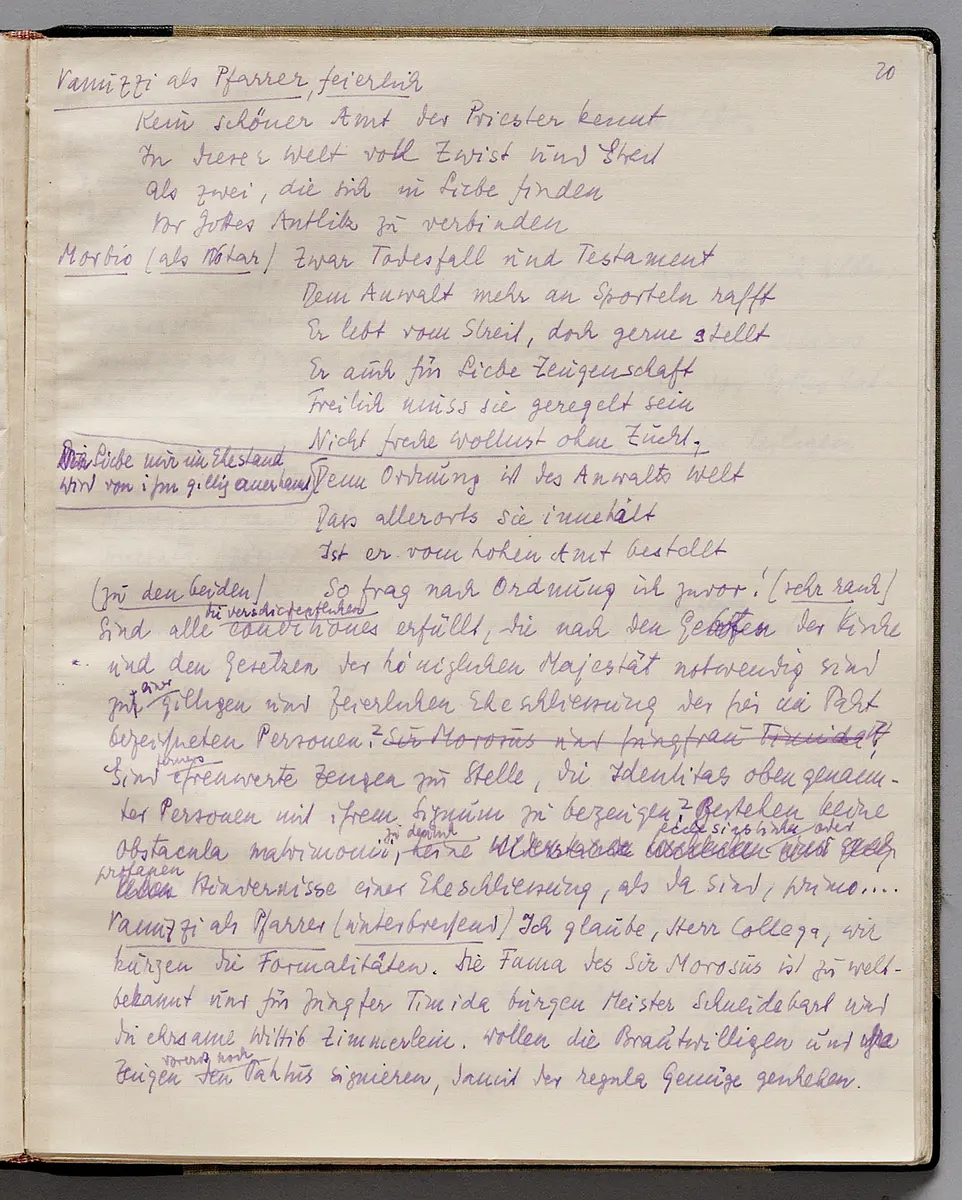 20
Vanuzzi als Pfarrer, feierlich
Kein schöner Amt der Priester kennt
In dieser Welt voll Zwist und Streit
als zwei, die sich in Liebe finden
Vor Gottes Antlitz zu verbinden
Morbio (als Notar) Zwar Todesfall und Testament
Dem Anwalt mehr an Sporteln rafft
Er lebt vom Streit, doch gerne stellt
Er auch für Liebe Zeugenschaft
Freilich muss sie geregelt sein
Nicht freche Wollust ohne Zucht,
Liebe nur im Ehestand
wird von ihm giltig anerkannt
Denn Ordnung ist des Anwalts Welt
Dass allerorts sie innehält
Ist er vom hohen Amt bestellt
(zu den beiden) So frag nach Ordnung ich zuvor! (sehr rasch)
die verschiedentlichen
Sind alle conditiones erfüllt, die nach den Geboten der Kirche
und den Gesetzen der königlichen Majestät notwendig sind
einer
zur giltigen und feierlichen Eheschliessung der hie im Pakt
bezeichneten Personen? Sir Morosus und Jungfrau Timida?
ferners
Sind ehrenwerte Zeugen zur Stelle, die Identitas obengenann-
ter Personen mit ihrem Signum zu bezeugen? Bestehen keine
zu deutsch ecclesiastische oder
obstacula matrimonii, keine
profanen
Hindernisse einer Eheschliessung, als da sind, primo....
Vanuzzi als Pfarrer (unterbrechend) Ich glaube, Herr Collega, wir
kürzen die Formalitäten. Die Fama des Sir Morosus ist zu welt-
bekannt und für Jungfer Timida bürgen Meister Schneidebart und
die ehrsame Wittib Zimmerlein. Wollen die Brautwilligen und die
vorerst noch
Zeugen den Paktus signieren, damit der regula Genüge geschehen.